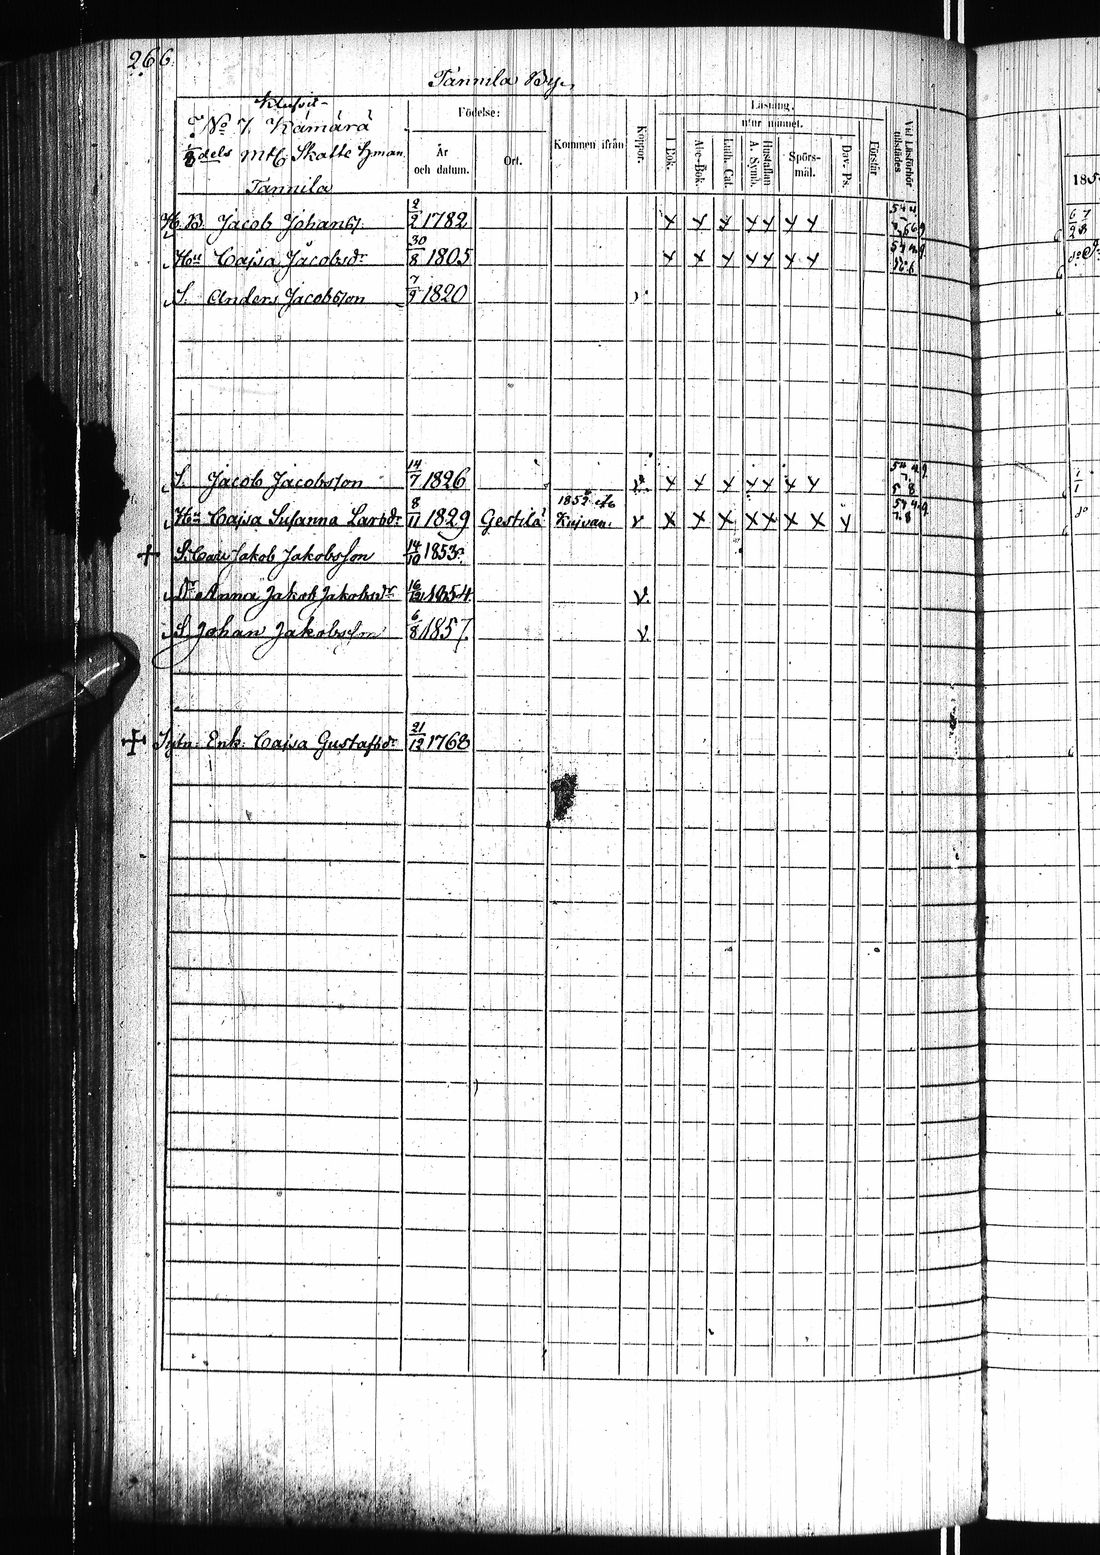 266.
Tannila By.
No 7. Kámárá
1/8 dels mtl. Skatte Hman
Tannila
Födelse:
År och datum.
Ort.
Kommen ifrån
Koppor.
Läsning,
utur minnet.
I Bok.
Abc-Bok.
Luth. Cat.
Hustaflan A. Symb.
Spörs-mål.
Dav. Ps.
Förstår
Vid Läsförhör tillstädes
185
H. B. Jacob Johans. 2/2 1782 x x x x x x x
Hu Cajsa Jacobsdr 30/8 1805 x x x x x x x
S. Anders Jacobsson 7/9 1820 v
S. Jacob Jacobsson 14/7 1826 v x x x x x x x
Hu Cajsa Susanna Larsdr 8/11 1829 Gestilä 1852 v x x x x x x x x
+ S. Jakob Jakobsson 14/10 1853
Dr Anna Jakobsdr 16/12 1854 v
S. Johan Jakobsson 6/8 1857. v
+ Enk. Cajsa Gustafsdr 21/12 1768